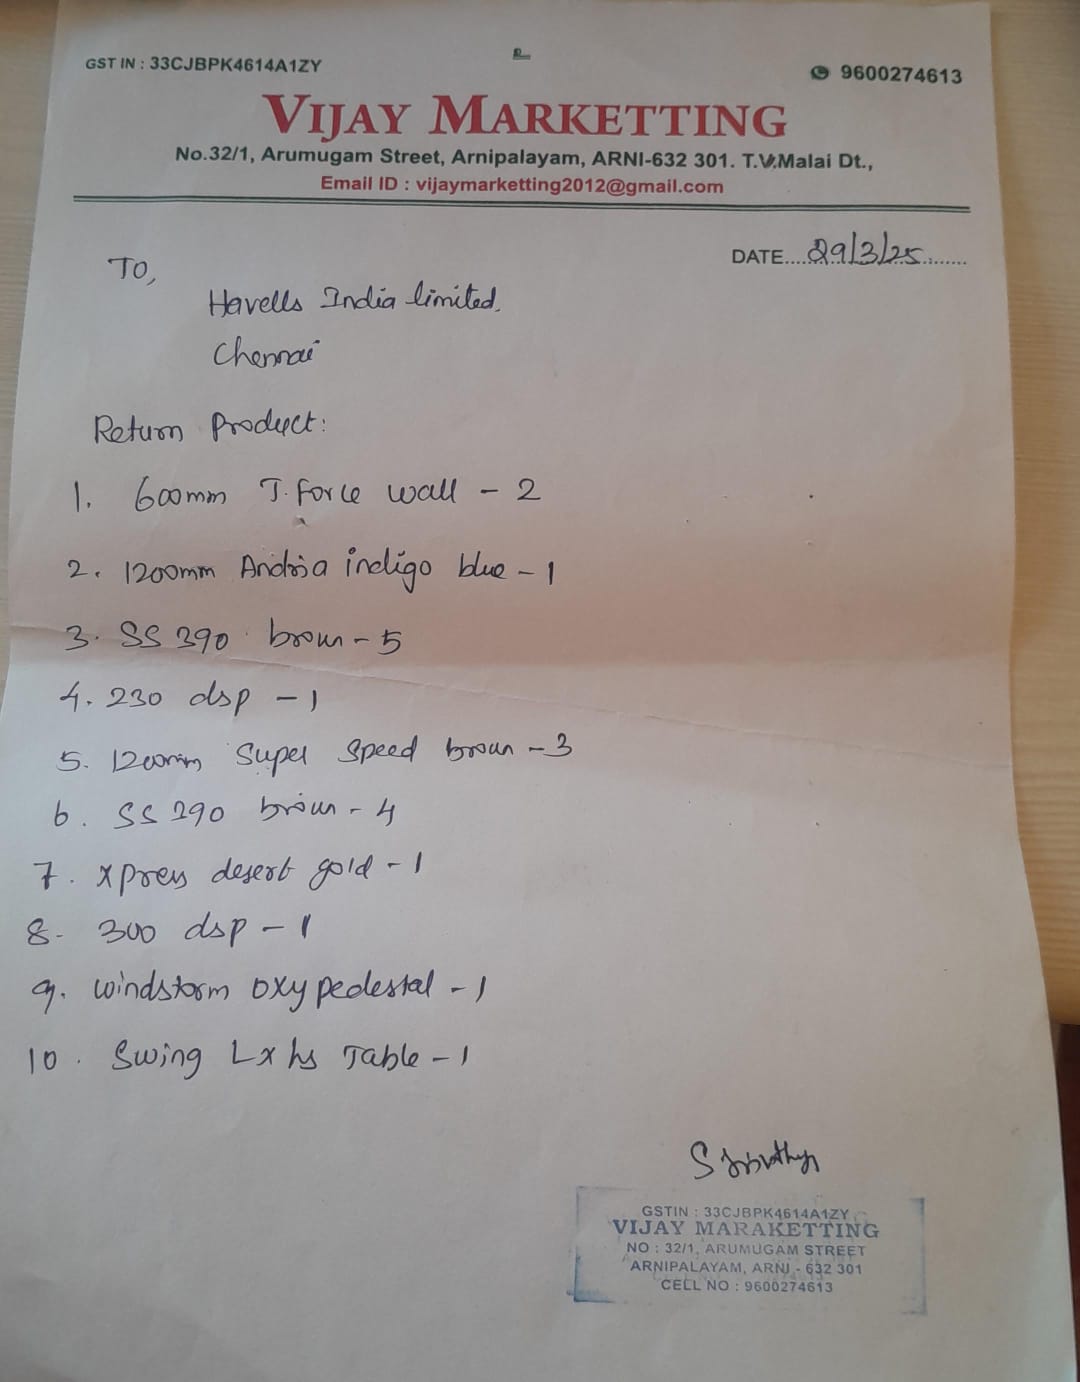 உ
GST IN : 33CJBPK4614A1ZY
9600274613
VIJAY MARKETTING
No.32/1, Arumugam Street, Arnipalayam, ARNI-632 301. T.V.Malai Dt.,
Email ID : vijaymarketting2012@gmail.com
DATE....29/3/25.........
TO,
Havells India limited.
Chennai
Return Product:
1. 600mm T.force wall - 2
2. 1200mm Andria indigo blue - 1
3. SS 390 broun - 5
4. 230 dsp - 1
5. 1200mm Super Speed broun - 3
6. SS 390 broun - 4
7. xpress desert gold - 1
8. 300 dsp - 1
9. windstorm oxy pedestal - 1
10. Swing Lx hs Table - 1
GSTIN : 33CJBPK4614A1ZY
VIJAY MARAKETTING
NO : 32/1, ARUMUGAM STREET
ARNIPALAYAM, ARNI - 632 301
CELL NO : 9600274613